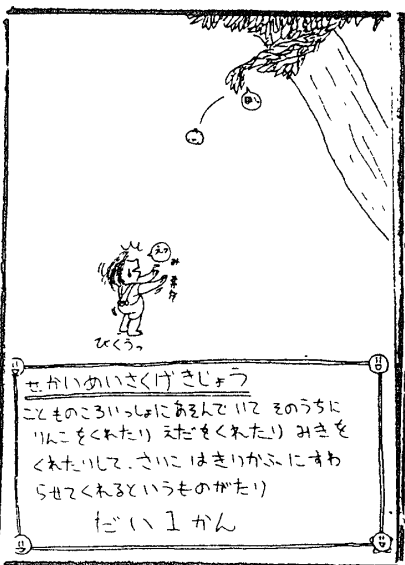 えっ
びくうっ
せかいめいさくげきじょう
こどものころいっしょにあそんでいて そのうちに
りんごをくれたり えだをくれたり みきを
くれたりして、さいごはきりかぶにすわ
らせてくれるというものがたり
だい1かん